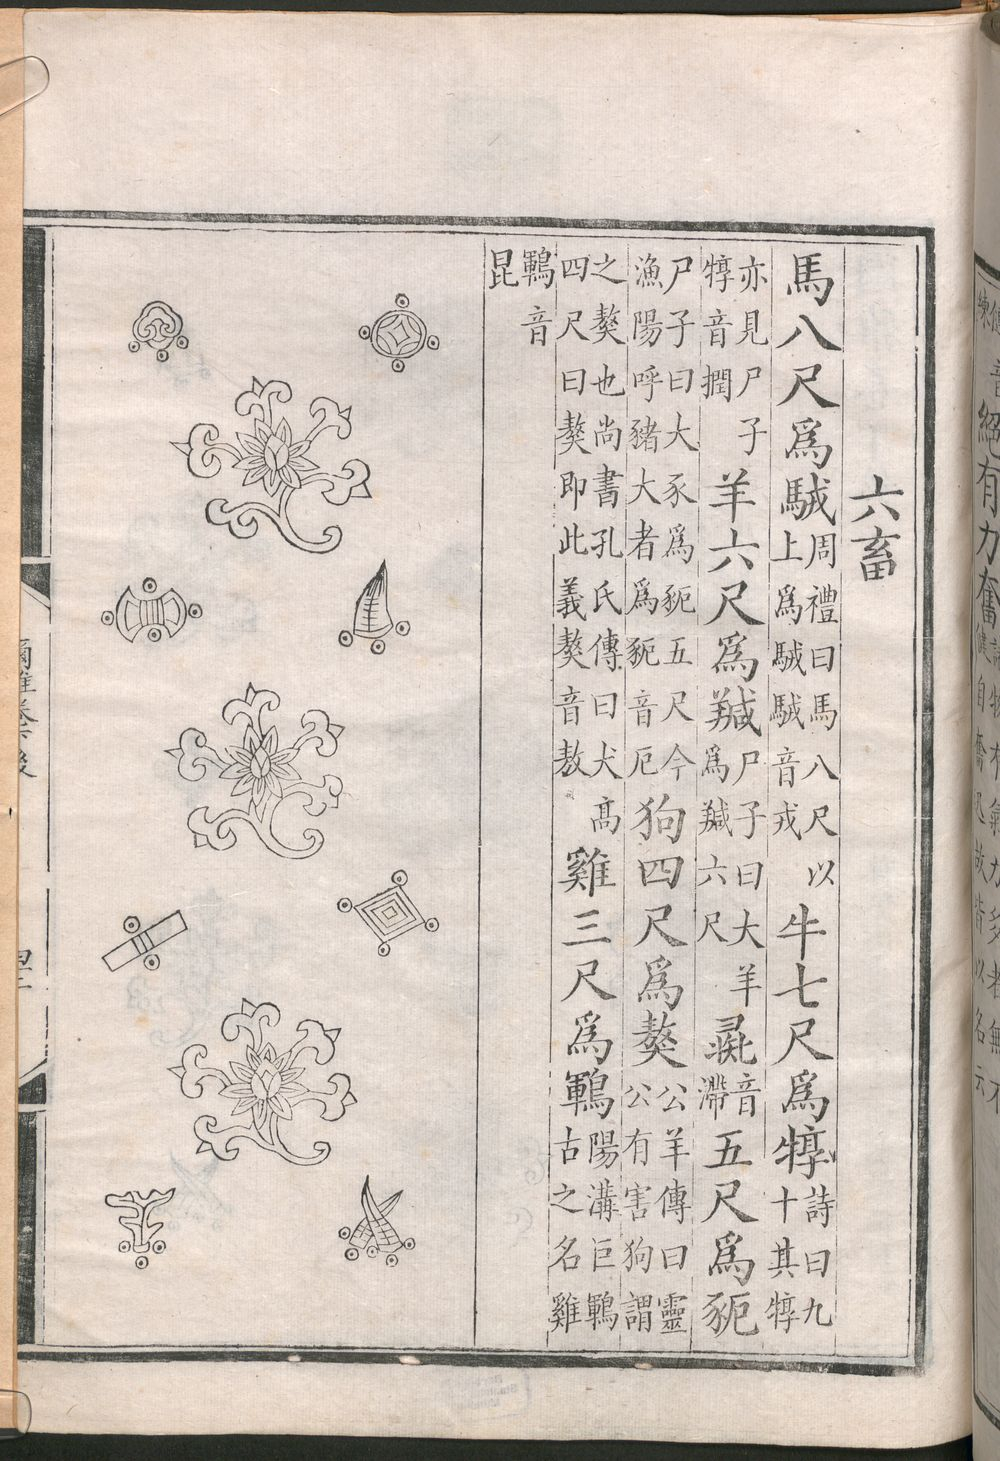 絕有力奮
健自奮迅故皆以名云
六畜
馬八尺爲駥周禮曰馬八尺以上爲駥駥音戎牛七尺爲犉詩曰九十其犉
亦見尸子犉音撋羊六尺爲羬尸子曰大羊爲羬六尺彘音滯五尺爲豟
尸子曰大豕爲豟五尺今漁陽呼豬大者爲豟音厄狗四尺爲獒公羊傳曰靈公有害狗謂
之獒也尚書孔氏傳曰犬高四尺曰獒即此義獒音敖雞三尺爲鶤陽溝巨鶤古之名雞
鶤音昆
爾雅卷下後